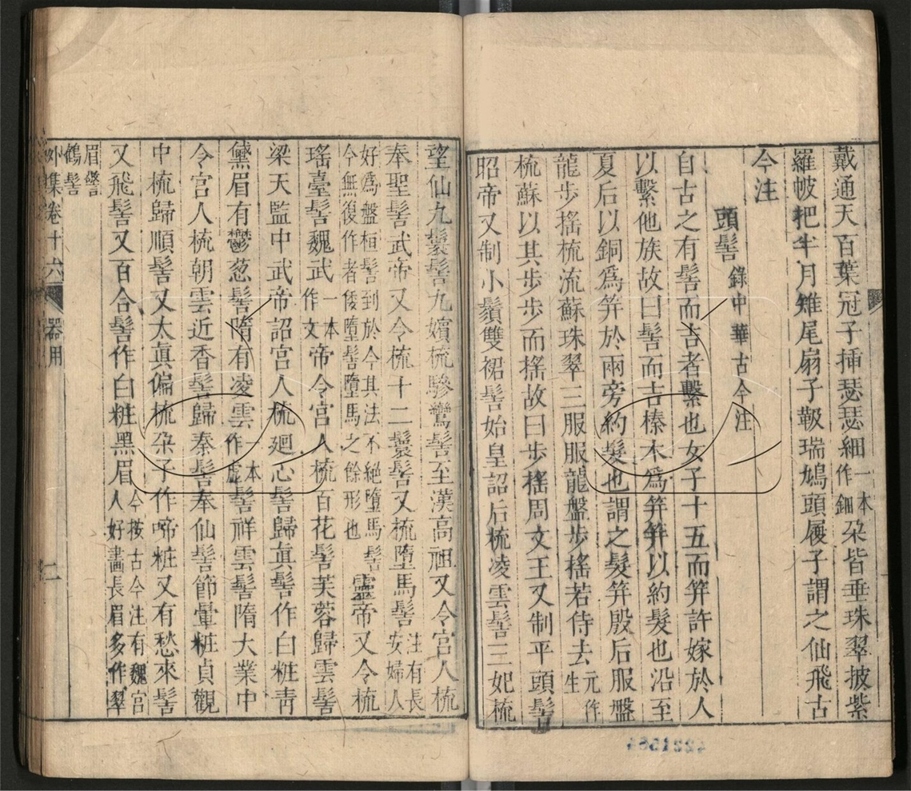 戴通天百葉冠子揷瑟瑟細一本作鈿朶皆垂珠翠披紫
羅帔把半月雉尾扇子靸瑞鳩頭履子謂之仙飛古
今注
頭髻錄中華古今注
自古之有髻而吉者繫也女子十五而筓許嫁於人
以繫他族故曰髻而吉榛木爲筓筓以約髮也沿至
夏后以銅爲筓於兩旁約髮也謂之髮筓殷后服盤
龍步搖梳流蘇珠翠三服服龍盤步搖若侍去元作生
梳蘇以其步步而搖故曰步搖周文王又制平頭髻
昭帝又制小鬚雙裙髻始皇詔后梳凌雲髻三妃梳
望仙九鬟髻九嬪梳驂鸞髻至漢高祖又令宮人梳
奉聖髻武帝又令梳十二鬟髻又梳墮馬髻注有長安婦人
好爲盤桓髻到於今其法不絕墮馬髻今無復作者倭墮髻墮馬之餘形也靈帝又令梳
瑤臺髻魏武一本作文帝令宮人梳百花髻芙蓉歸雲髻
梁天監中武帝詔宮人梳廻心髻歸眞髻作白粧靑
黛眉有鬱葱髻隋有凌雲一本作虛髻祥雲髻隋大業中
令宮人梳朝雲近香髻歸秦髻奉仙髻節暈粧貞觀
中梳歸順髻又太眞偏梳朶子作啼粧又有愁來髻
又飛髻又百合髻作白粧黑眉今按古今注有魏宮人好畵長眉多作翠
眉警鶴髻
外集卷十六 器用 二